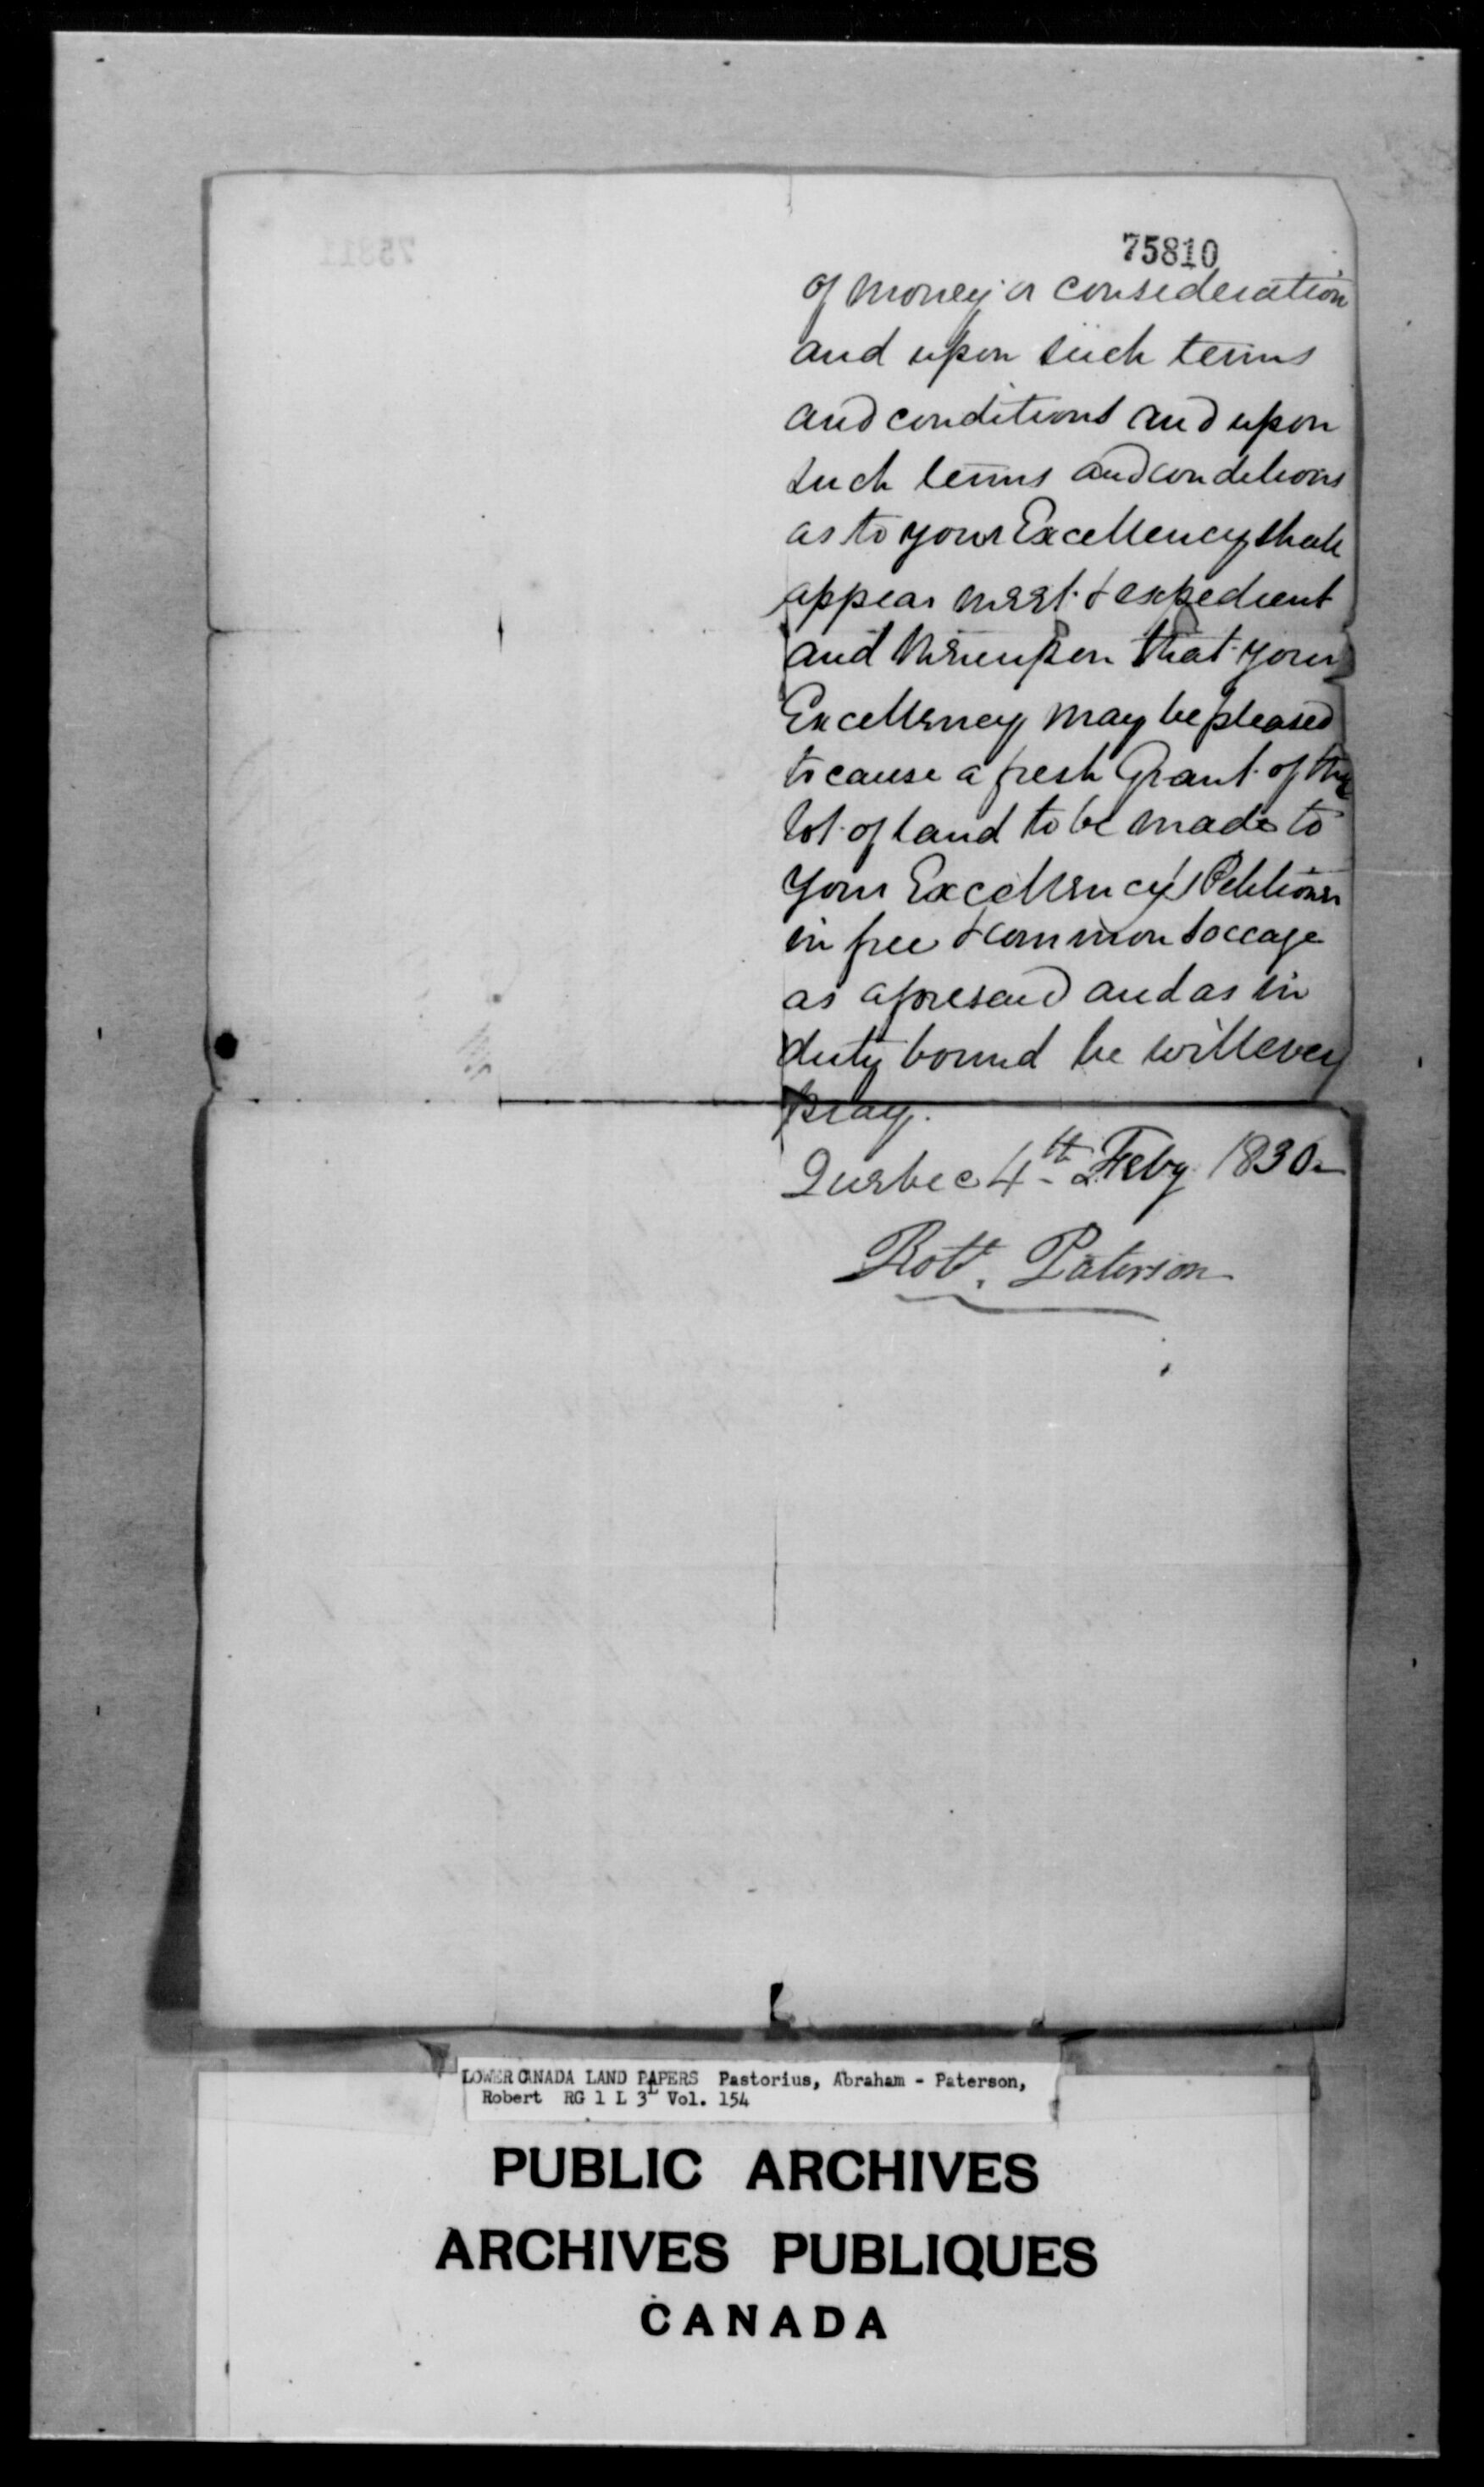 75810
of money or consideration
and upon such terms
and conditions and upon
such terms and conditions
as to your Excellency shall
appear meet & expedient
and thereupon that your
Excellency may be pleased
to cause a fresh Grant of the
lot of land to be made to
your Excellency's Petitioner
in free & common soccage
as aforesaid and as in
duty bound he will ever
pray.
Quebec 4th Feby 1830
Robt. Paterson
LOWER CANADA LAND PAPERS Pastorius, Abraham - Paterson,
Robert RG 1 L 3L Vol. 154
PUBLIC ARCHIVES
ARCHIVES PUBLIQUES
CANADA